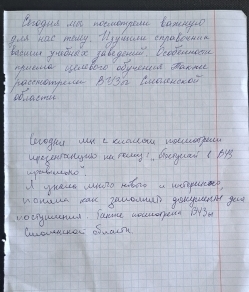 Сегодня мы посмотрели важную
для нас тему. Изучили справочник
высших учебных заведений. Особенности
приема целевого обучения. Также
рассмотрели ВУЗы Смоленской
области.
Сегодня мы с классом посмотрели
презентацию на тему: "Выбирай с ВУЗ
правильно".
Я узнала много нового и интересного
поняла как заполнять документы для
поступления. Также посмотрела ВУЗы
Смоленской области.